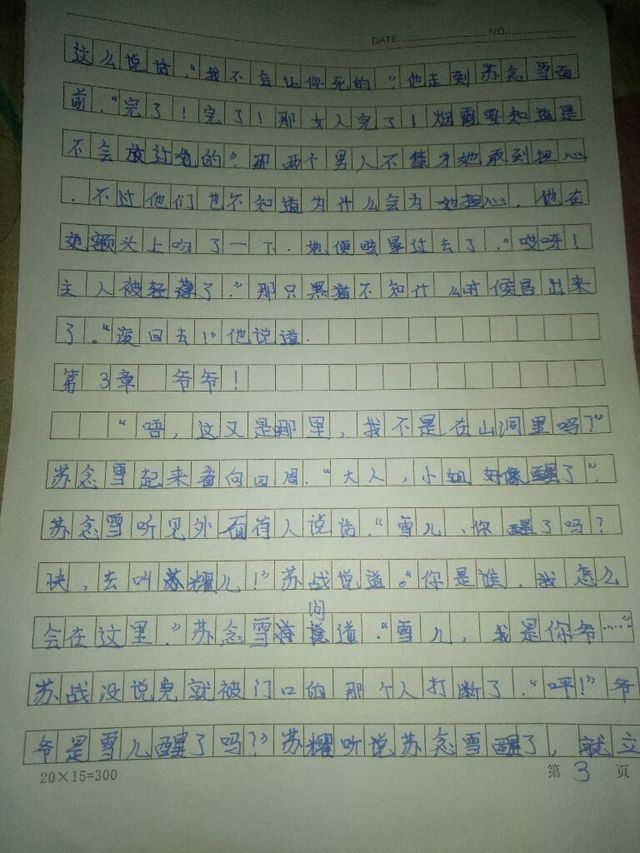 DATE: NO.:
这么说话."我不会让你死的".他走到苏念雪面
前."完了!完了!那女人完了!烟霞要知道是
不会放过她的".那两个男人不禁为她感到担心
.不过他们也不知道为什么会为她担心.他在
她额头上吻了一下.她便眩晕过去了."哎呀!
主人被轻薄了."那只黑猫不知什么时候冒出来
了."滚回去!"他说道.
第3章 爷爷!
"唔,这又是那里,我不是在山洞里吗?"
苏念雪起来看向四周."大人,小姐好像醒了".
苏念雪听见外面有人说话."雪儿,你醒了吗?
快,去叫苏耀儿!"苏战说道."你是谁.我怎么
会在这里."苏念雪问道."雪儿,我是你爷……
苏战没说完就被门口的那个人打断了."呯!"爷
爷是雪儿醒了吗?"苏耀听说苏念雪醒了,就立
20×15=300 第3页